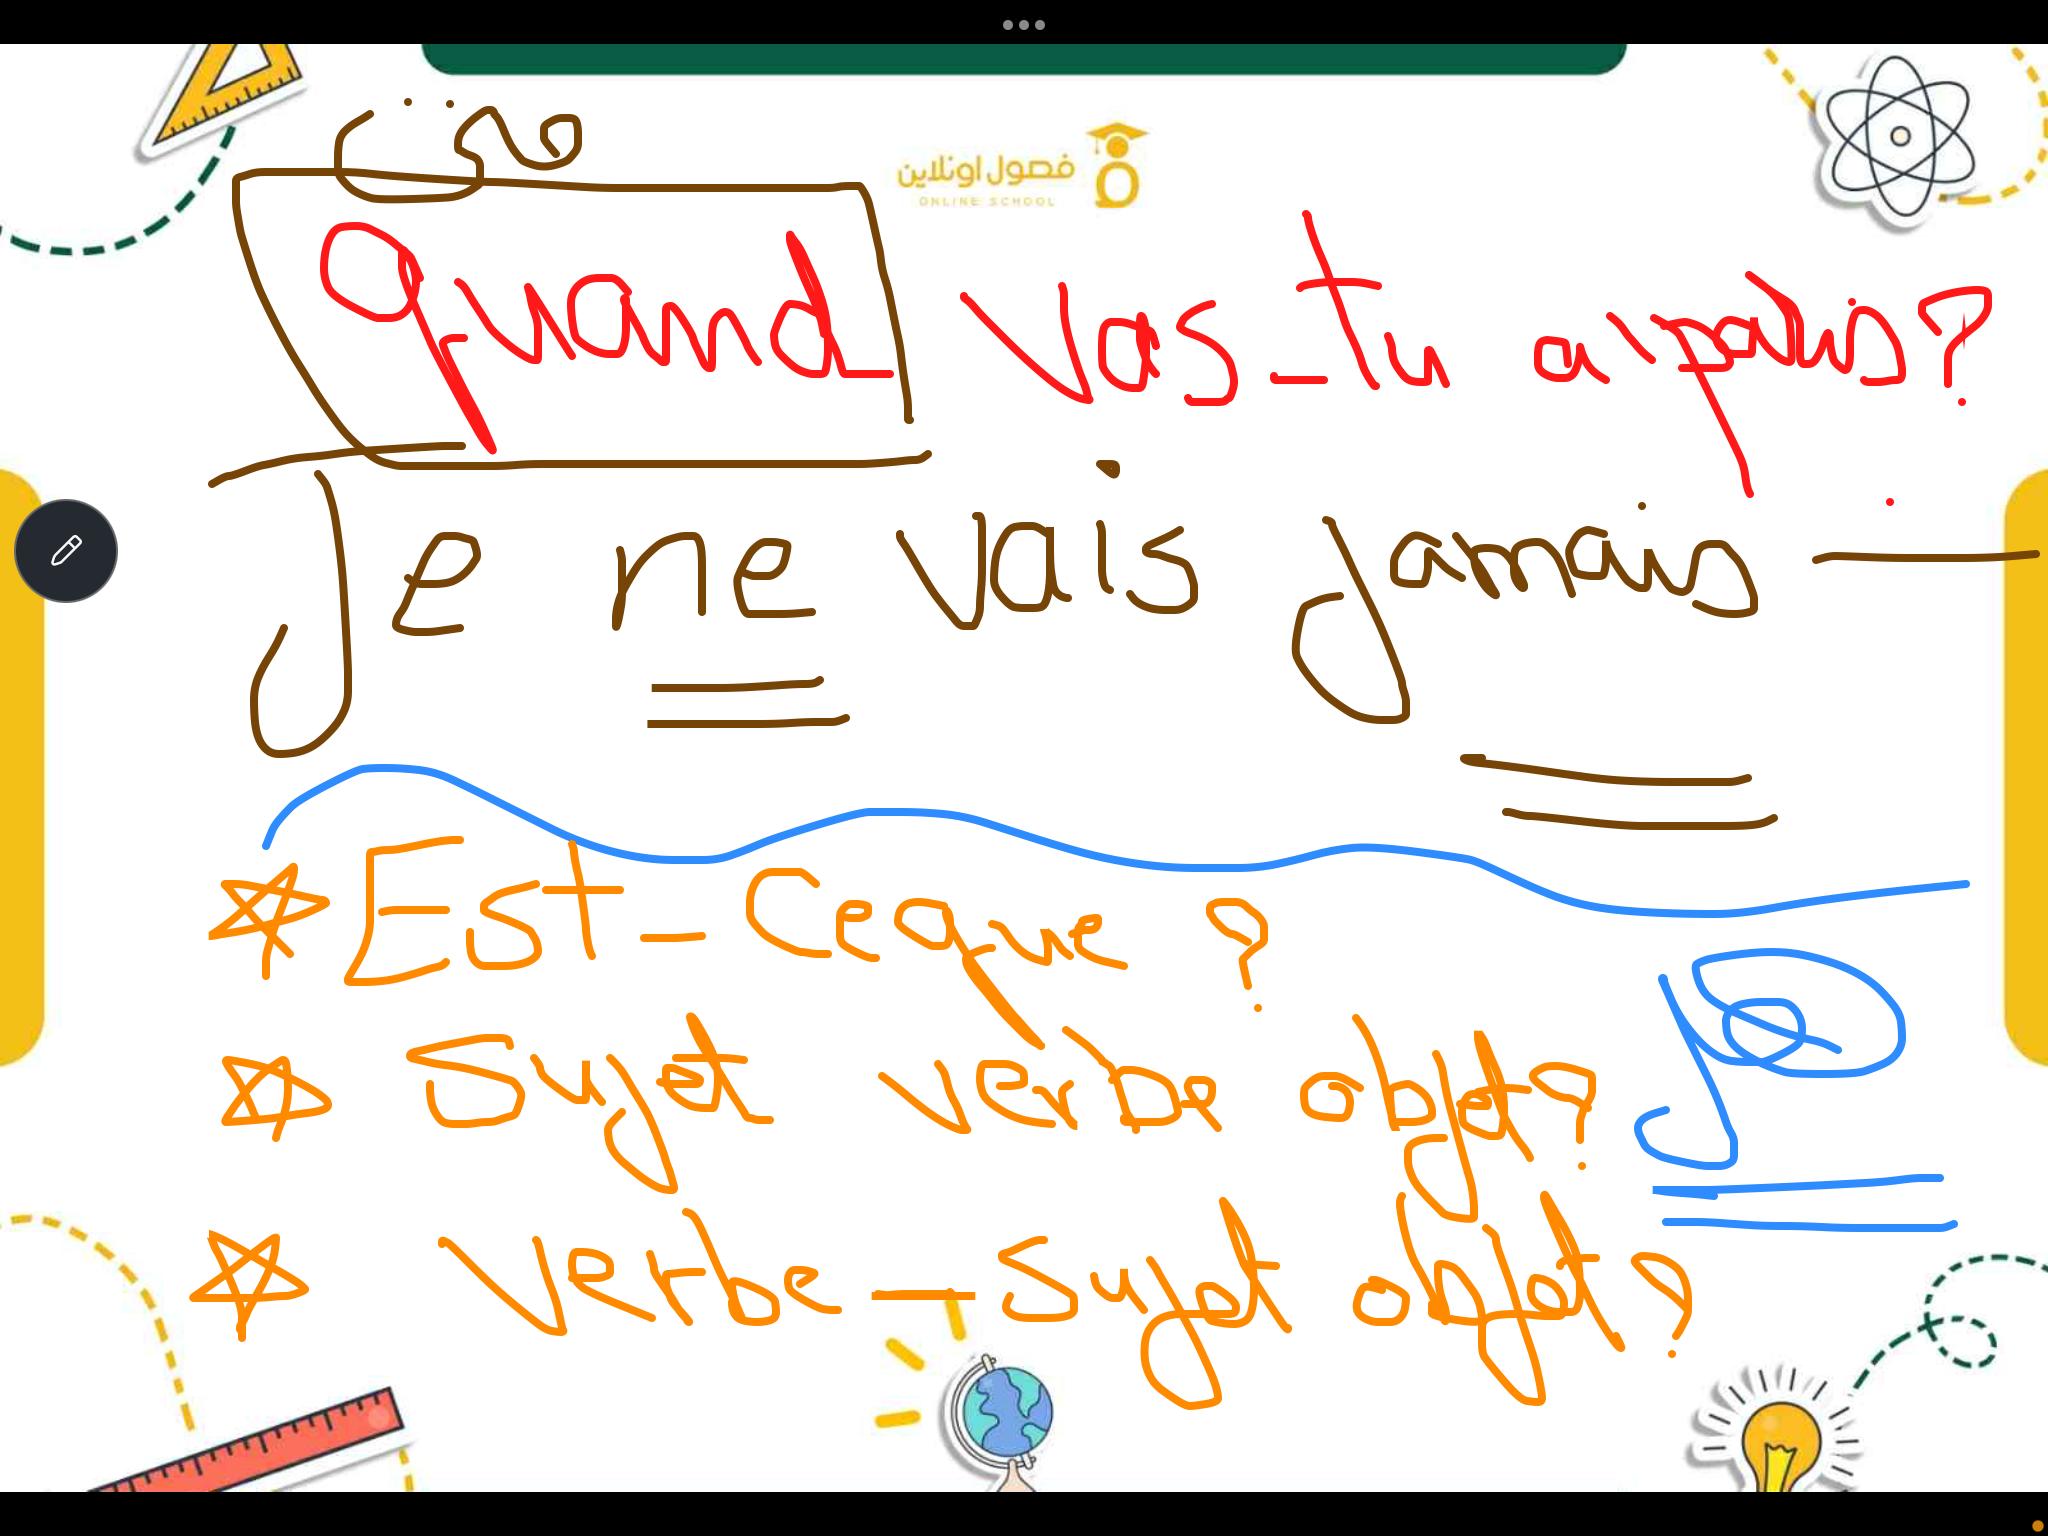 متى
فصول اونلاين
ONLINE SCHOOL
Quand vas-tu a palais?
Je ne vais jamais —
Est-Ceque ?
Sujet verbe objet?
هل
Verbe-Sujet objet?